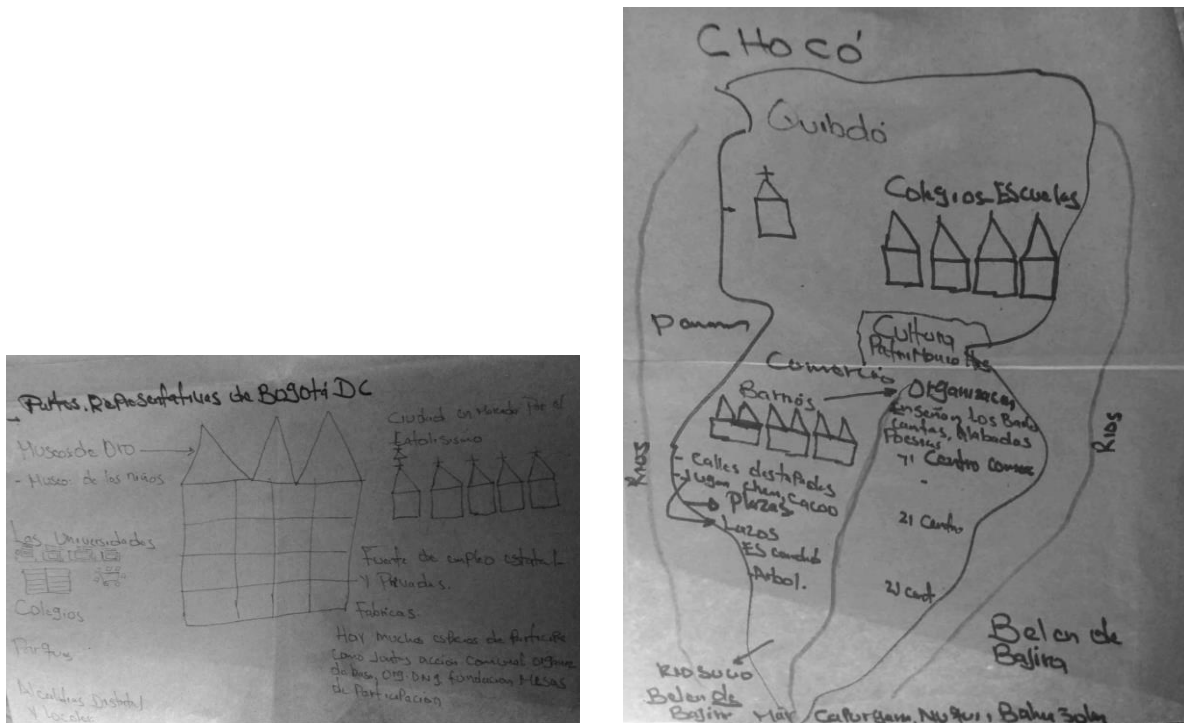 Partes. Representativas de Bogotá DC
Museos de Oro
- Museo de los niños
Las Universidades
Colegios
Parques
Alcaldias Distrital
Y Locales
Ciudad en Marcada Por el
Catolisismo
Fuente de empleo estatal
Y Privados.
Fabricas.
Hay muchos espacios de Participa
como Juntas accion Comunal
de base, Org. ONG fundacion Mesas
de Participación
CHOCÓ
Quibdó
Colegios-Escuelas
Panam
Cultura
Comercio
Barrios
Organizacion
Enseñan Los
cantos, Alabados
Poesias
Centro
- Calles destapadas
- Jugar
Plazas
Lazos
Escondid
Arbol.
21 Centro
RIOS
RIOS
RIO SUCIO
Belen de
Bajira
Belen de
Bajira
Mar Capurgana, Nuqui, Bahia